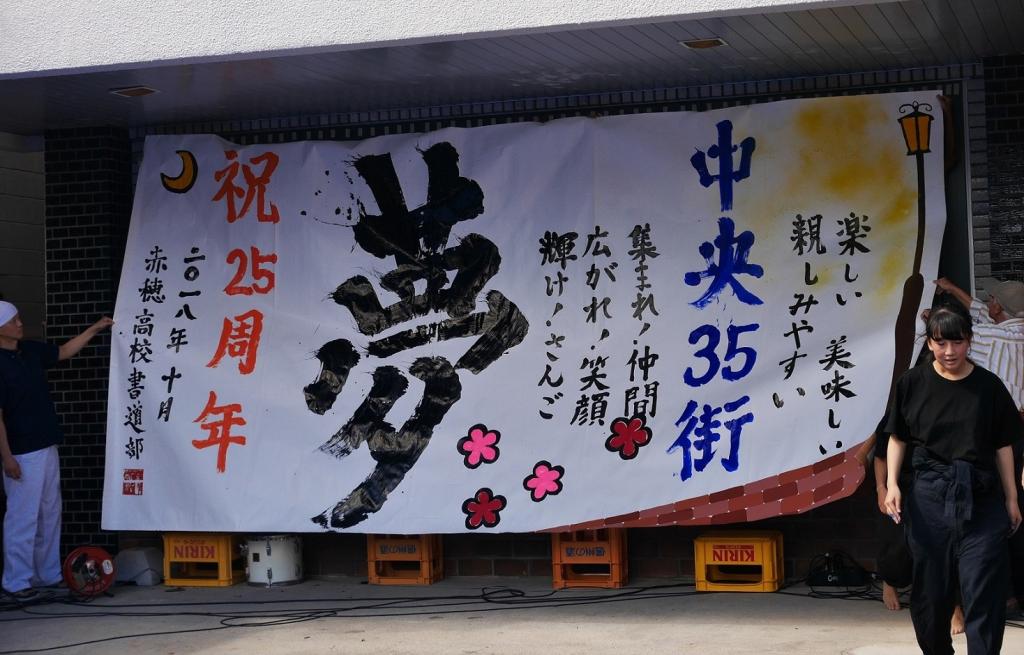 楽しい 美味しい
親しみやすい
中央35街
集まれ!仲間
広がれ!笑顔
輝け!さんご
夢
祝25周年
二〇一八年 十月
赤穂高校書道部
KIRIN
KIRIN